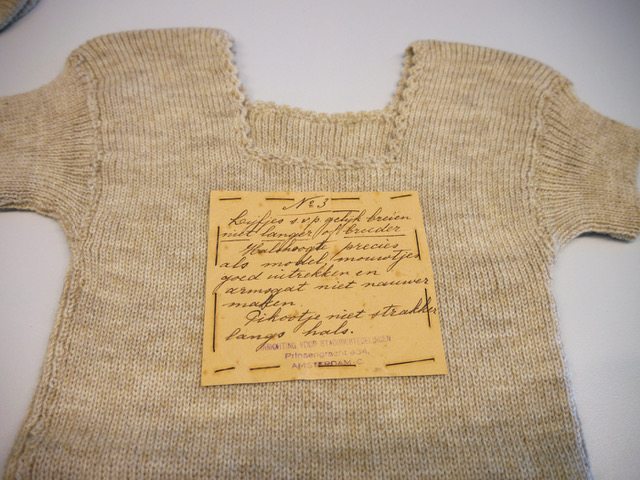 No 3
Lijfjes s.v.p. gelijk breien
niet langer of breeder
Halshoogte precies
als model, mouwtjes
goed uitrekken en
armsgat niet nauwer
maken.
Pikootje niet strakker
langs hals.
INRICHTING VOOR STADSBESTEDELINGEN
Prinsengracht 854,
AMSTERDAM-C.